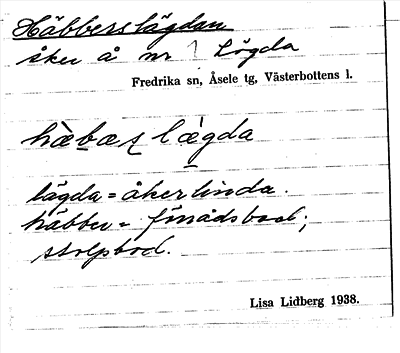 Häbberslägdan
åker å nr 1 Lögda
Fredrika sn, Åsele tg, Västerbottens l.
hæ̀bæʂ læ̀gda
lägda = åkerlinda.
häbber = förrådsbod;
stolpbod.
Lisa Lidberg 1938.